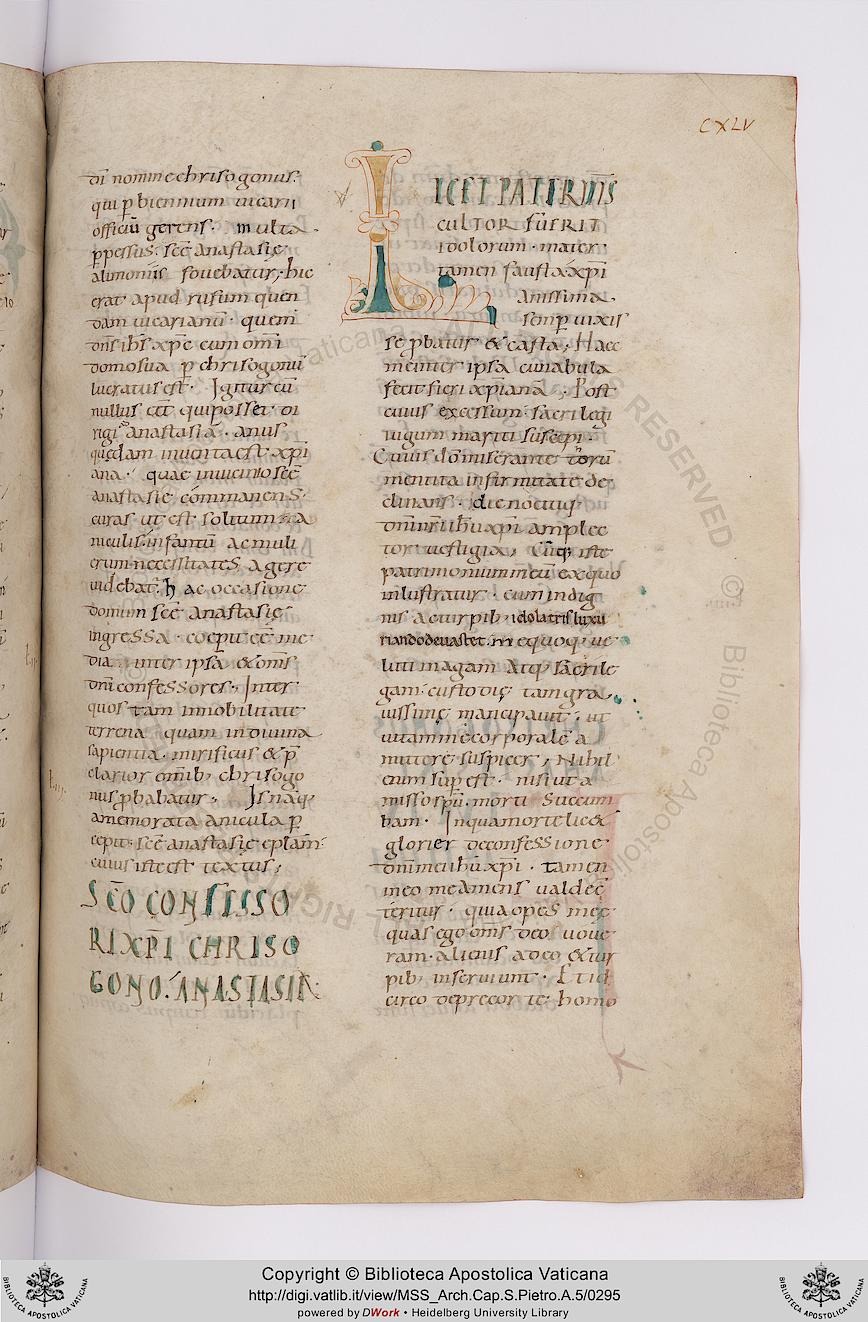 CXLV
di nomine chrisogonus.
qui p̄ biennium uicarii
officiū gerens. multa
ppessus. scē anastasię
alimoniis fouebatur; hic
erat apud rufum quen
dam uicarianū. quem
dn̄s ihs̄ xp̄c cum omi
domo sua p̄ chrisogonū
lucratus est. Igitur cū
nullus eēt qui posset di
rigi ad anastasiā. anus
quędam inuenta est xp̄i
ana. quae in uicinio scē
anastasię commanens.
curas ut est solitum ra
niculis. infantū ac muli
erum necessitates agere
uidebat. hac occasione
domum scē anastasię
ingressa. coepit eē me
dia. inter ipsā & om̄s
dn̄i confessores. Inter
quos tam in nobilitate
terrena quam in diuina
sapientia. mirificus & p̄
clarior omib; chrisogo
nus p̄babatur. Is naq;
a memorata anicula p̄
cepit. scē anastasię eplam̄
cuius iste est textus;
SC̄O CONFESSO
RI XP̄I CHRISO
GONO. ANASTASIA.
LICET PATER MS
CULTOR FUERIT
idolorum. mater
tamen fausta xp̄i
anissima.
semp̄ uixis
se p̄batur & casta; Haec
me inter ipsa cunabula
fecit fieri xp̄ianā; Post
cuius excessum. sacrilegi
iugum mariti suscepi.
Cuius dō miserante torū
mentita infirmitate de
clinans. die noctuq;
dn̄i mi ihū xp̄i amplec
tor uestigia; Cūq; iste
patrimonium meū ex quo
inlustratur. cum indig
nis ac turpib; idolatris luxu
riando deuastet. me quoq; ue
luti magam atq; sacrile
gam. custodię tam gra
uissimę mancipauit. ut
uitam me corporalē a
mittere suspicer; Nihil
enim sup est. nisi ut a
misso spū. morti succum
bam. In qua morte lic&
glorier de confessione
dn̄i mei ihū xp̄i. tamen
in eo me a mens ualde c̄
teritur. quia opes męę
quas ego om̄s deo uoue
ram. alienis a deo & tur
pib; inseruiunt. Et id
circo deprecor te. homo
Copyright © Biblioteca Apostolica Vaticana
http://digi.vatlib.it/view/MSS_Arch.Cap.S.Pietro.A.5/0295
powered by DWork • Heidelberg University Library